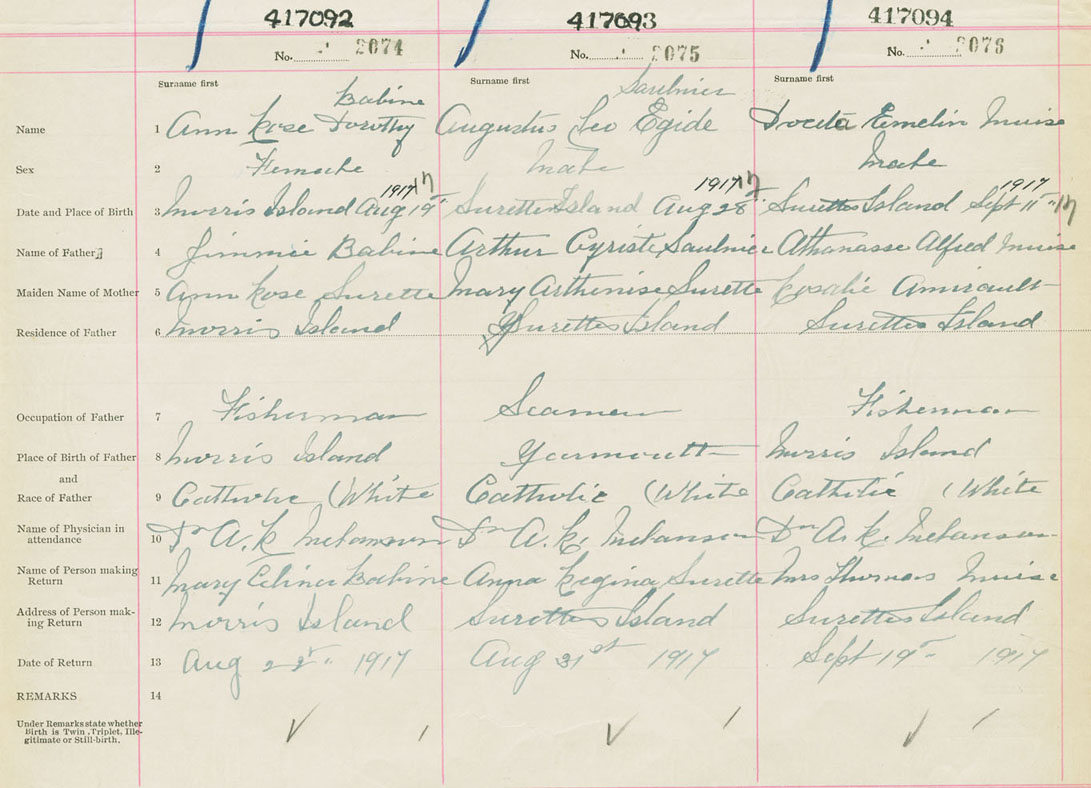 417092 417093 417094
No. 2074 No. 2075 No. 2076
Surname first Surname first Surname first
Babine Saulnier
Name 1 Ann Rose Dorothy Augustus Leo Egide Emelin Muise
Sex 2 Female Male Male
1917 17 1917 17 1917
Date and Place of Birth 3 Morris Island Aug 19" Surettes Island Aug 28" Surettes Island Sept 11" 17
Name of Father 4 Jimmie Babine Arthur Cyriste Saulnier Athanasse Alfred Muise
Maiden Name of Mother 5 Ann Rose Surette Mary Arthenise Surette Rosalie Amirault
Residence of Father 6 Morris Island Surettes Island Surettes Island
Occupation of Father 7 Fisherman Seamen Fisherman
Place of Birth of Father 8 Morris Island Yarmouth Morris Island
and
Race of Father 9 Catholic (White Catholic (White Catholic (White
Name of Physician in
attendance 10 Dr A. K Melanson Dr A. K. Melanson Dr A. K. Melanson
Name of Person making
Return 11 Mary Elina Babine Anna Regina Surette Mrs Thomas Muise
Address of Person mak-
ing Return 12 Morris Island Surettes Island Surettes Island
Date of Return 13 Aug 22 1917 Aug 31st 1917 Sept 19 1917
REMARKS 14
Under Remarks state whether
Birth is Twin, Triplet, Ille-
gitimate or Still-birth.